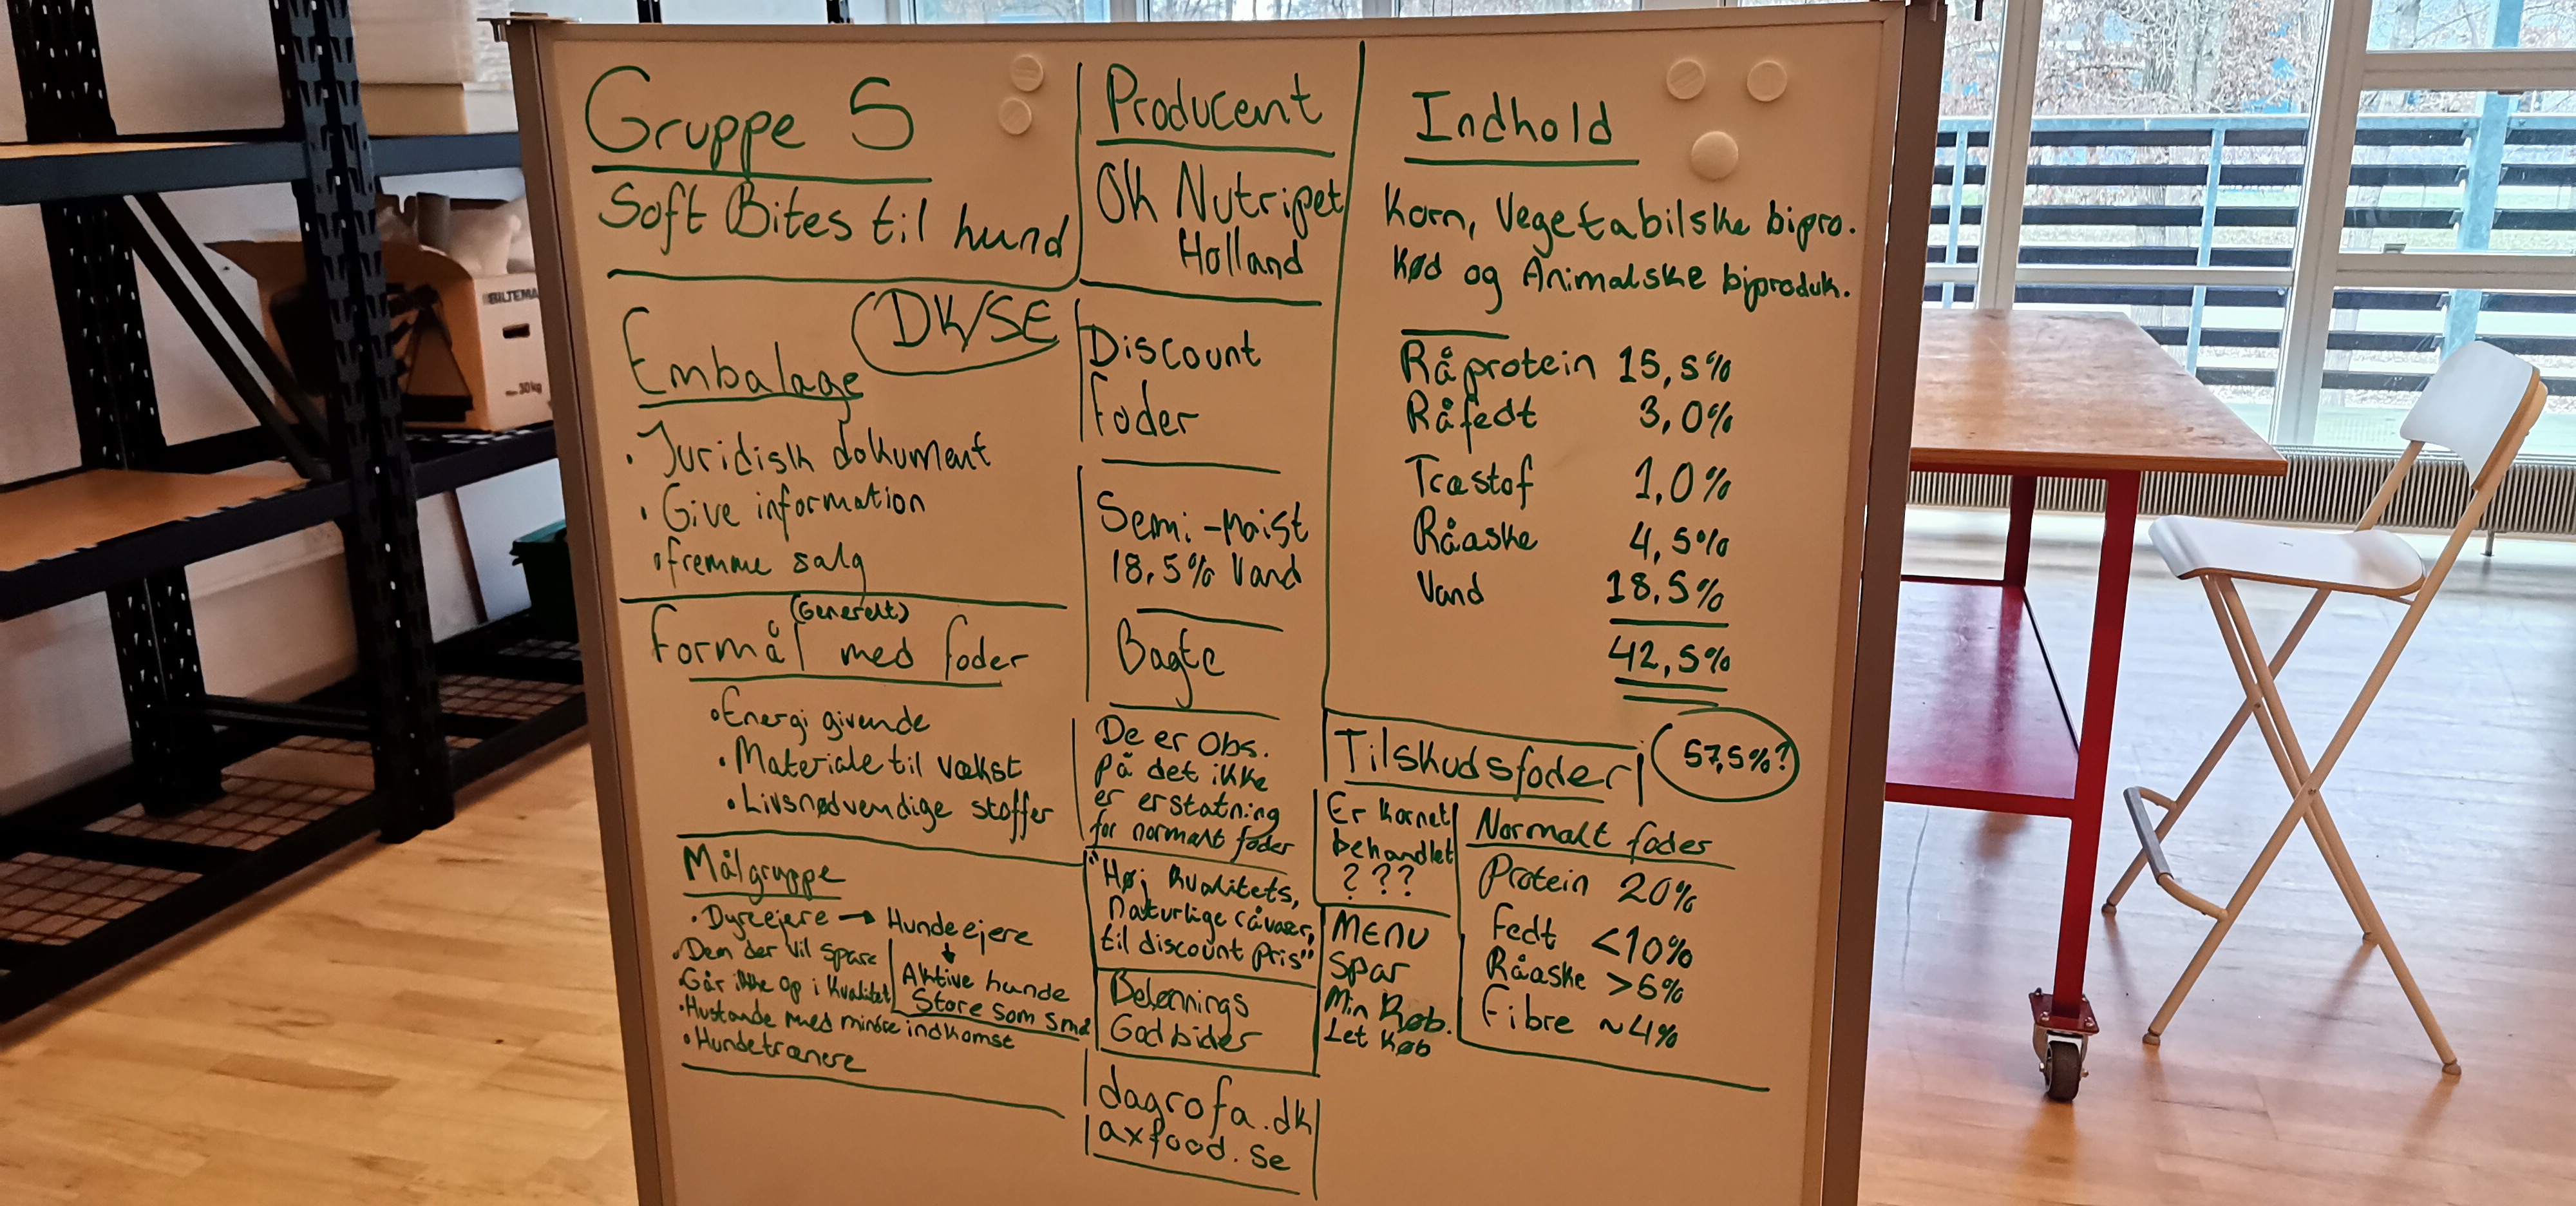 Gruppe 5
Soft Bites til hund
DK/SE
Embalage
• Juridisk dokument
• Give information
• fremme salg
(Generelt)
Formål med foder
• Energi givende
• Materiale til vækst
• Livsnødvendige stoffer
Målgruppe
• Dyreejere → Hundeejere
Aktive hunde
Store som små
• Dem der vil spare
• Går ikke op i kvalitet
• Hustande med mindre indkomst
• Hundetrænere
Producent
OK Nutripet
Holland
Discount
Foder
Semi-moist
18,5% Vand
Bagte
De er Obs.
på det ikke
er erstatning
for normalt foder
"Høj kvalitets,
Naturlige råvarer,
til discount pris"
Belønnings
Godbider
dagrofa.dk
axfood.se
Indhold
Korn, Vegetabilske bipro.
Kød og Animalske biproduk.
Råprotein 15,5%
Råfedt 3,0%
Træstof 1,0%
Råaske 4,5%
Vand 18,5%
42,5%
57,5%?
Tilskudsfoder
Er kornet
behandlet
???
MENU
Spar
Min Køb.
Let Køb
Normalt foder
Protein 20%
Fedt <10%
Råaske >6%
Fibre ~4%
BILTEMA
30kg